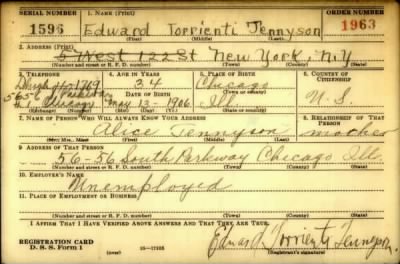 SERIAL NUMBER 1. NAME (Print) ORDER NUMBER
1596 Edward Torrienti Tennyson 1963
(First) (Middle) (Last)
2. ADDRESS (Print)
5 West 122 St New York, N.Y
(Number and street or R. F. D. number) (Town) (County) (State)
3. TELEPHONE 4. AGE IN YEARS 5. PLACE OF BIRTH 6. COUNTRY OF CITIZENSHIP
34 Chicago
DATE OF BIRTH (Town or county)
May 13 - 1906 Ill U.S.
(Mo.) (Day) (Yr.) (State or country)
7. NAME OF PERSON WHO WILL ALWAYS KNOW YOUR ADDRESS 8. RELATIONSHIP OF THAT PERSON
Alice Tennyson mother
(Mr., Mrs., Miss) (First) (Middle) (Last)
9. ADDRESS OF THAT PERSON
56-56 South Parkway Chicago Ill.
(Number and street or R. F. D. number) (Town) (County) (State)
10. EMPLOYER'S NAME
Unemployed
11. PLACE OF EMPLOYMENT OR BUSINESS
(Number and street or R. F. D. number) (Town) (County) (State)
I AFFIRM THAT I HAVE VERIFIED ABOVE ANSWERS AND THAT THEY ARE TRUE.
REGISTRATION CARD
D. S. S. Form 1
Torrienti Tennyson
(Registrant's signature)